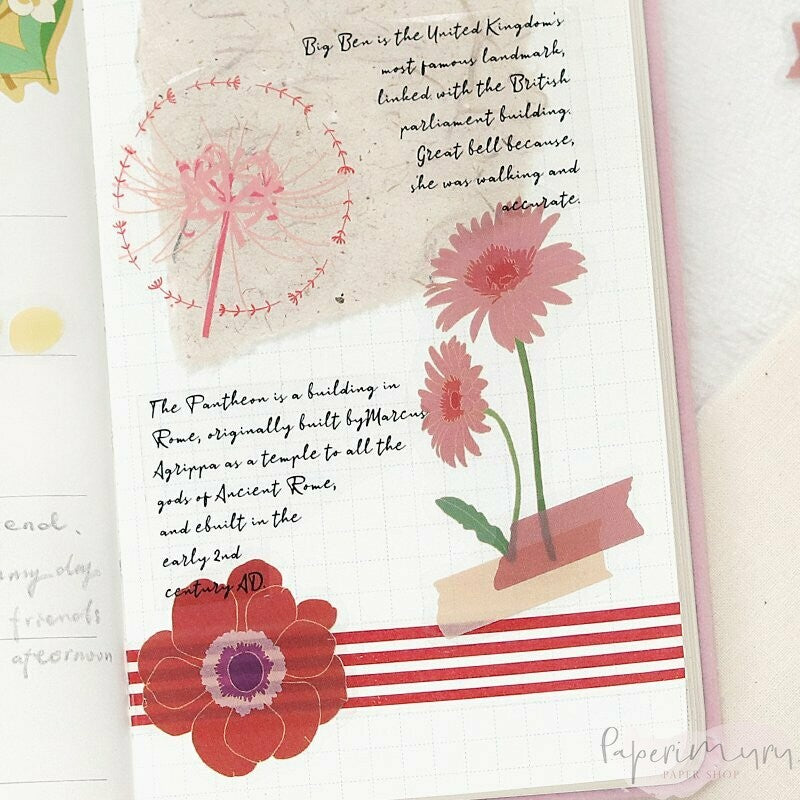 Big Ben is the United Kingdom's
most famous landmark,
linked with the British
parliament building.
Great bell because,
she was walking and
accurate.
The Pantheon is a building in
Rome, originally built byMarcus
Agrippa as a temple to all the
gods of Ancient Rome,
and ebuilt in the
early 2nd
century AD.
end.
my day
friends
afternoon
PaperiMymy
PAPER SHOP